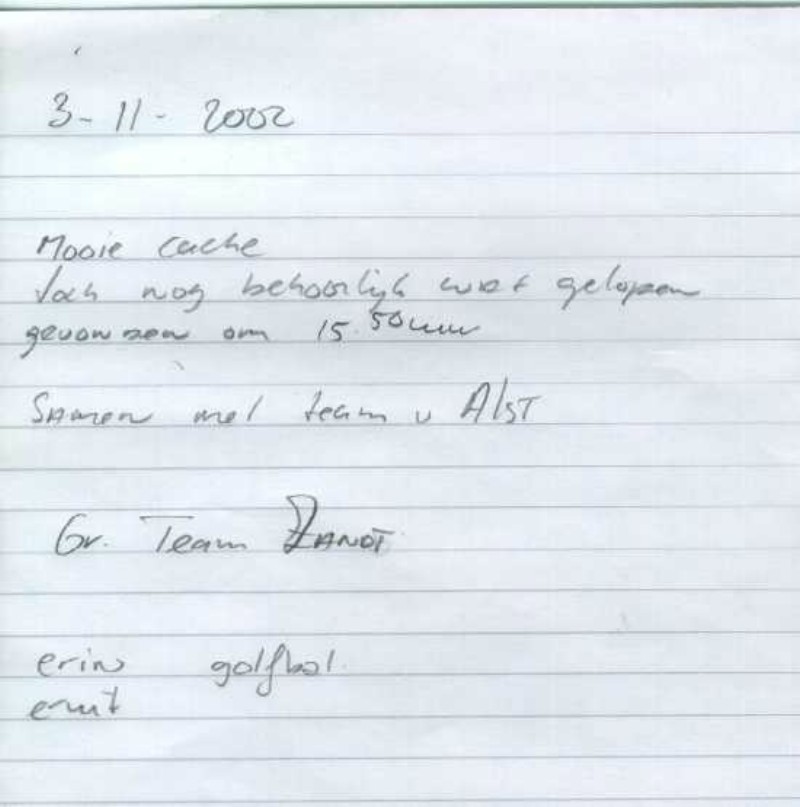 3-11-2002
Mooie cache
Toch nog behoorlijk wat gelopen
gevonden om 15.50 uur
Samen met team v Alst
Gr. Team ZANDT
erin golfbal.
eruit